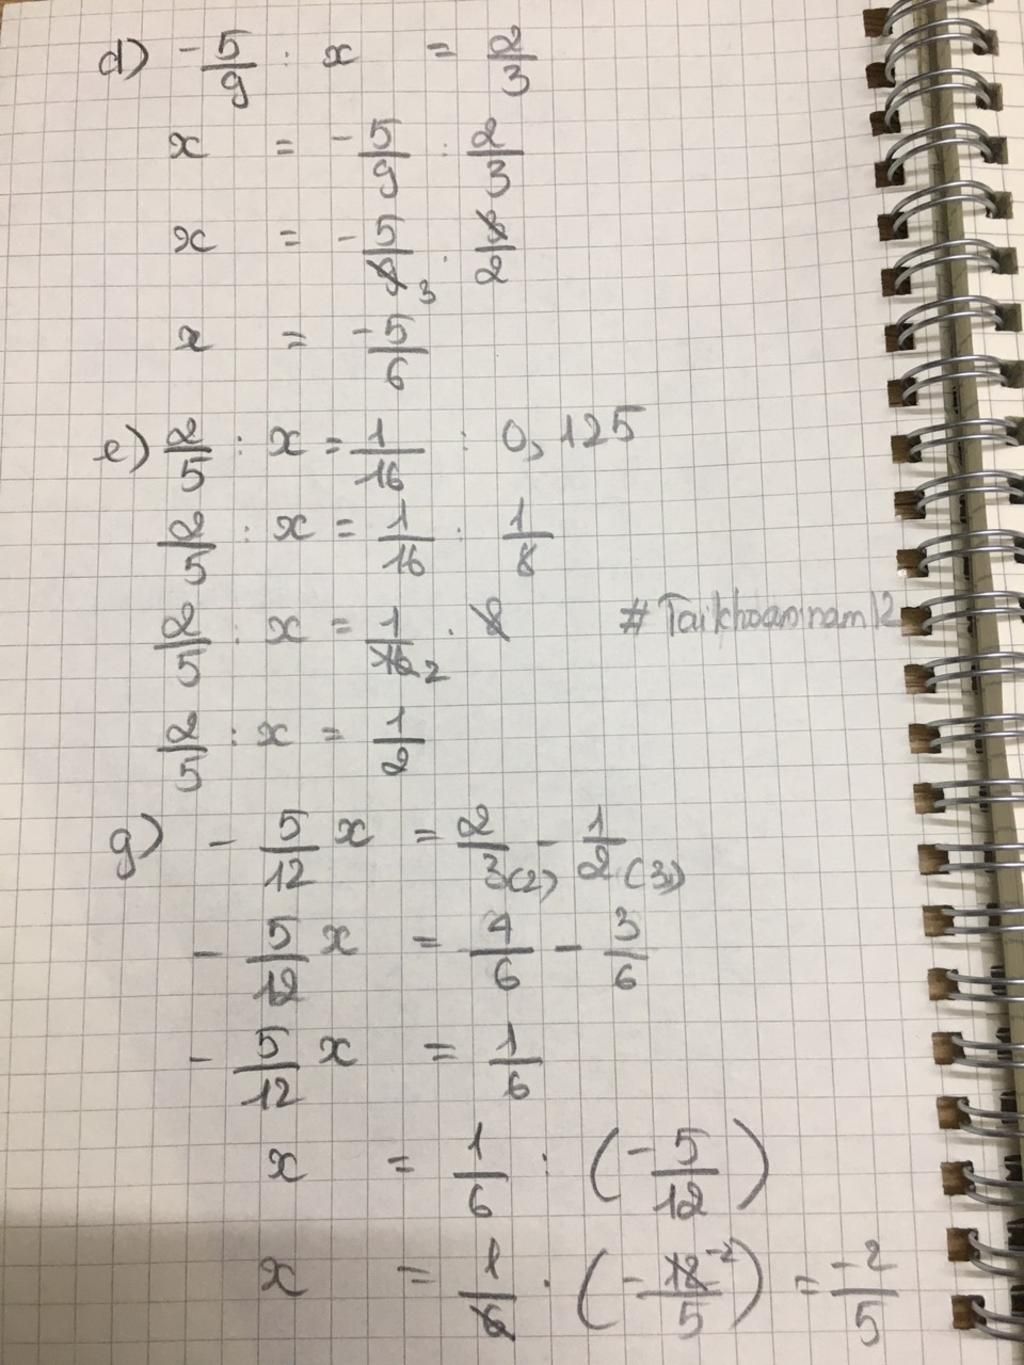 d) -5/9 : x = 2/3
x = -5/9 : 2/3
x = -5/9 3 . 3/2
x = -5/6
e) 2/5 : x = 1/16 : 0,125
2/5 : x = 1/16 : 1/8
2/5 : x = 1/16 2 . 8 #Taikhoannam12
2/5 : x = 1/2
g) - 5/12 x = 2/3(2) - 1/2(3)
- 5/12 x = 4/6 - 3/6
- 5/12 x = 1/6
x = 1/6 : (-5/12)
x = 1/6 . (-12 -2/5) = -2/5